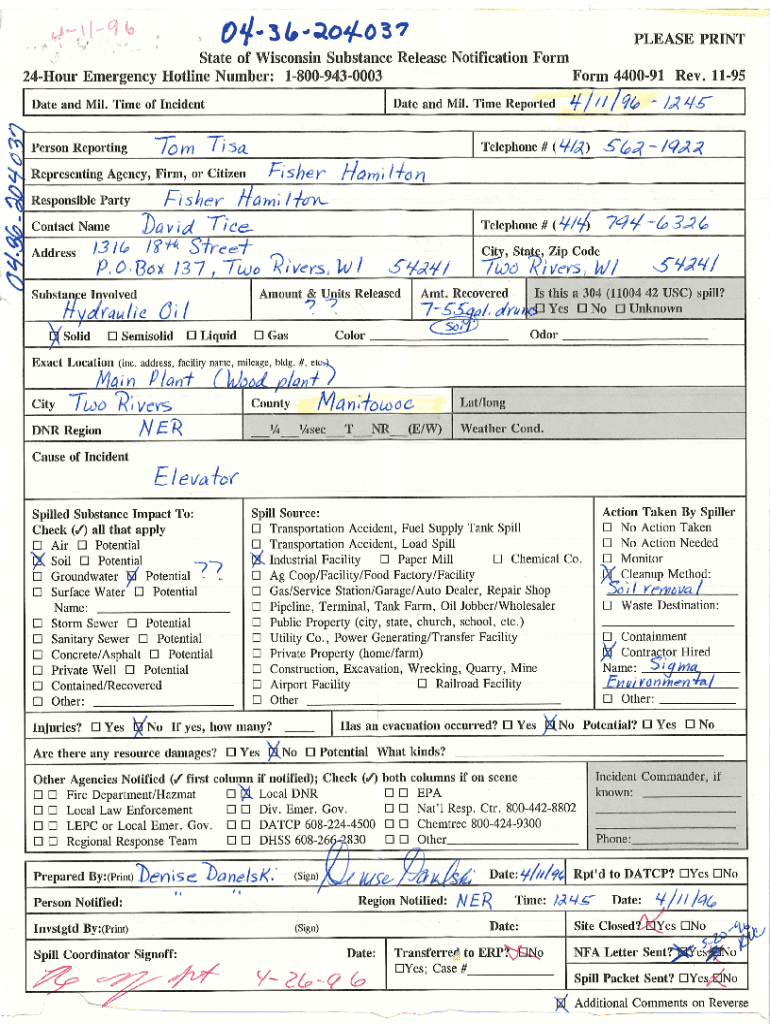 4-11-96
04-36-204037
PLEASE PRINT
State of Wisconsin Substance Release Notification Form
24-Hour Emergency Hotline Number: 1-800-943-0003 Form 4400-91 Rev. 11-95
Date and Mil. Time of Incident Date and Mil. Time Reported 4/11/96 - 1245
04-36-204037
Person Reporting Tom Tisa Telephone # (412) 562-1922
Representing Agency, Firm, or Citizen Fisher Hamilton
Responsible Party Fisher Hamilton
Contact Name David Tice Telephone # (414) 794-6326
Address 1316 18th Street City, State, Zip Code
P.O. Box 137, Two Rivers, WI 54241 Two Rivers, WI 54241
Substance Involved Amount & Units Released Amt. Recovered Is this a 304 (11004 42 USC) spill?
Hydraulic Oil ? ? 7-55gal. drums ☐ Yes ☐ No ☐ Unknown
☒ Solid ☐ Semisolid ☐ Liquid ☐ Gas Color (Soil) Odor
Exact Location (inc. address, facility name, mileage, bldg. #, etc.)
Main Plant (Wood plant)
City Two Rivers County Manitowoc Lat/long
DNR Region NER ¼ ¼sec T NR (E/W) Weather Cond.
Cause of Incident
Elevator
Spilled Substance Impact To: Spill Source: Action Taken By Spiller
Check (✓) all that apply ☐ Transportation Accident, Fuel Supply Tank Spill ☐ No Action Taken
☐ Air ☐ Potential ☐ Transportation Accident, Load Spill ☐ No Action Needed
☒ Soil ☐ Potential ☒ Industrial Facility ☐ Paper Mill ☐ Chemical Co. ☐ Monitor
☐ Groundwater ☒ Potential ?? ☐ Ag Coop/Facility/Food Factory/Facility ☒ Cleanup Method:
☐ Surface Water ☐ Potential ☐ Gas/Service Station/Garage/Auto Dealer, Repair Shop Soil removal
Name: ☐ Pipeline, Terminal, Tank Farm, Oil Jobber/Wholesaler ☐ Waste Destination:
☐ Storm Sewer ☐ Potential ☐ Public Property (city, state, church, school, etc.)
☐ Sanitary Sewer ☐ Potential ☐ Utility Co., Power Generating/Transfer Facility ☐ Containment
☐ Concrete/Asphalt ☐ Potential ☐ Private Property (home/farm) ☒ Contractor Hired
☐ Private Well ☐ Potential ☐ Construction, Excavation, Wrecking, Quarry, Mine Name: Sigma
☐ Contained/Recovered ☐ Airport Facility ☐ Railroad Facility Environmental
☐ Other: ☐ Other ☐ Other:
Injuries? ☐ Yes ☒ No If yes, how many? Has an evacuation occurred? ☐ Yes ☒ No Potential? ☐ Yes ☐ No
Are there any resource damages? ☐ Yes ☒ No ☐ Potential What kinds?
Other Agencies Notified (✓ first column if notified); Check (✓) both columns if on scene Incident Commander, if
☐ ☐ Fire Department/Hazmat ☐ ☒ Local DNR ☐ ☐ EPA known:
☐ ☐ Local Law Enforcement ☐ ☐ Div. Emer. Gov. ☐ ☐ Nat'l Resp. Ctr. 800-442-8802
☐ ☐ LEPC or Local Emer. Gov. ☐ ☐ DATCP 608-224-4500 ☐ ☐ Chemtrec 800-424-9300
☐ ☐ Regional Response Team ☐ ☐ DHSS 608-266-2830 ☐ ☐ Other Phone:
Prepared By:(Print) Denise Danelski (Sign) Denise Danelski Date: 4/11/96 Rpt'd to DATCP? ☐Yes ☐No
Person Notified: " " Region Notified: NER Time: 1245 Date: 4/11/96
Invstgtd By:(Print) (Sign) Date: Site Closed? ☒Yes ☐No
Spill Coordinator Signoff: Date: Transferred to ERP? ☒No NFA Letter Sent? ☒Yes ☒No 5-20-96
4-26-96 ☐Yes; Case # Spill Packet Sent? ☐Yes ☒No
☒ Additional Comments on Reverse